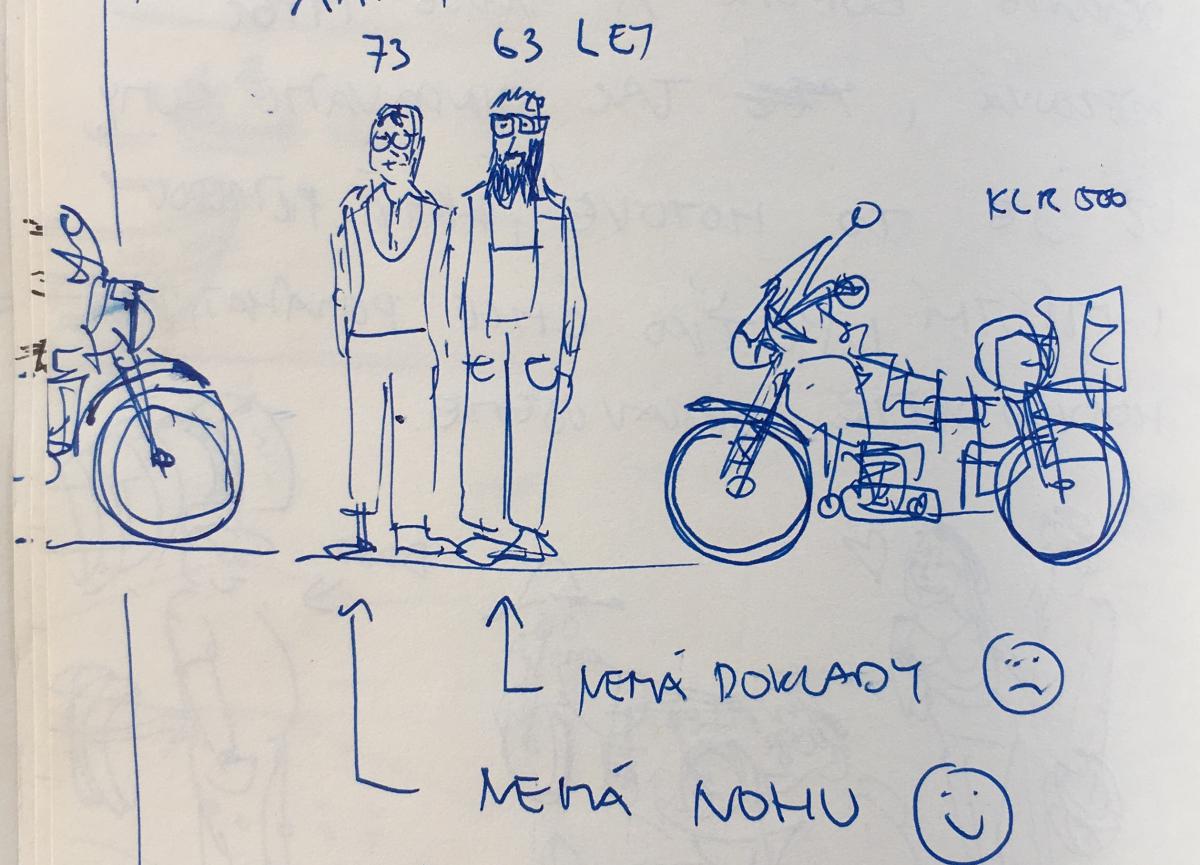 73 63 LET
KLR 500
NEMÁ DOKLADY
NEMÁ NOHU